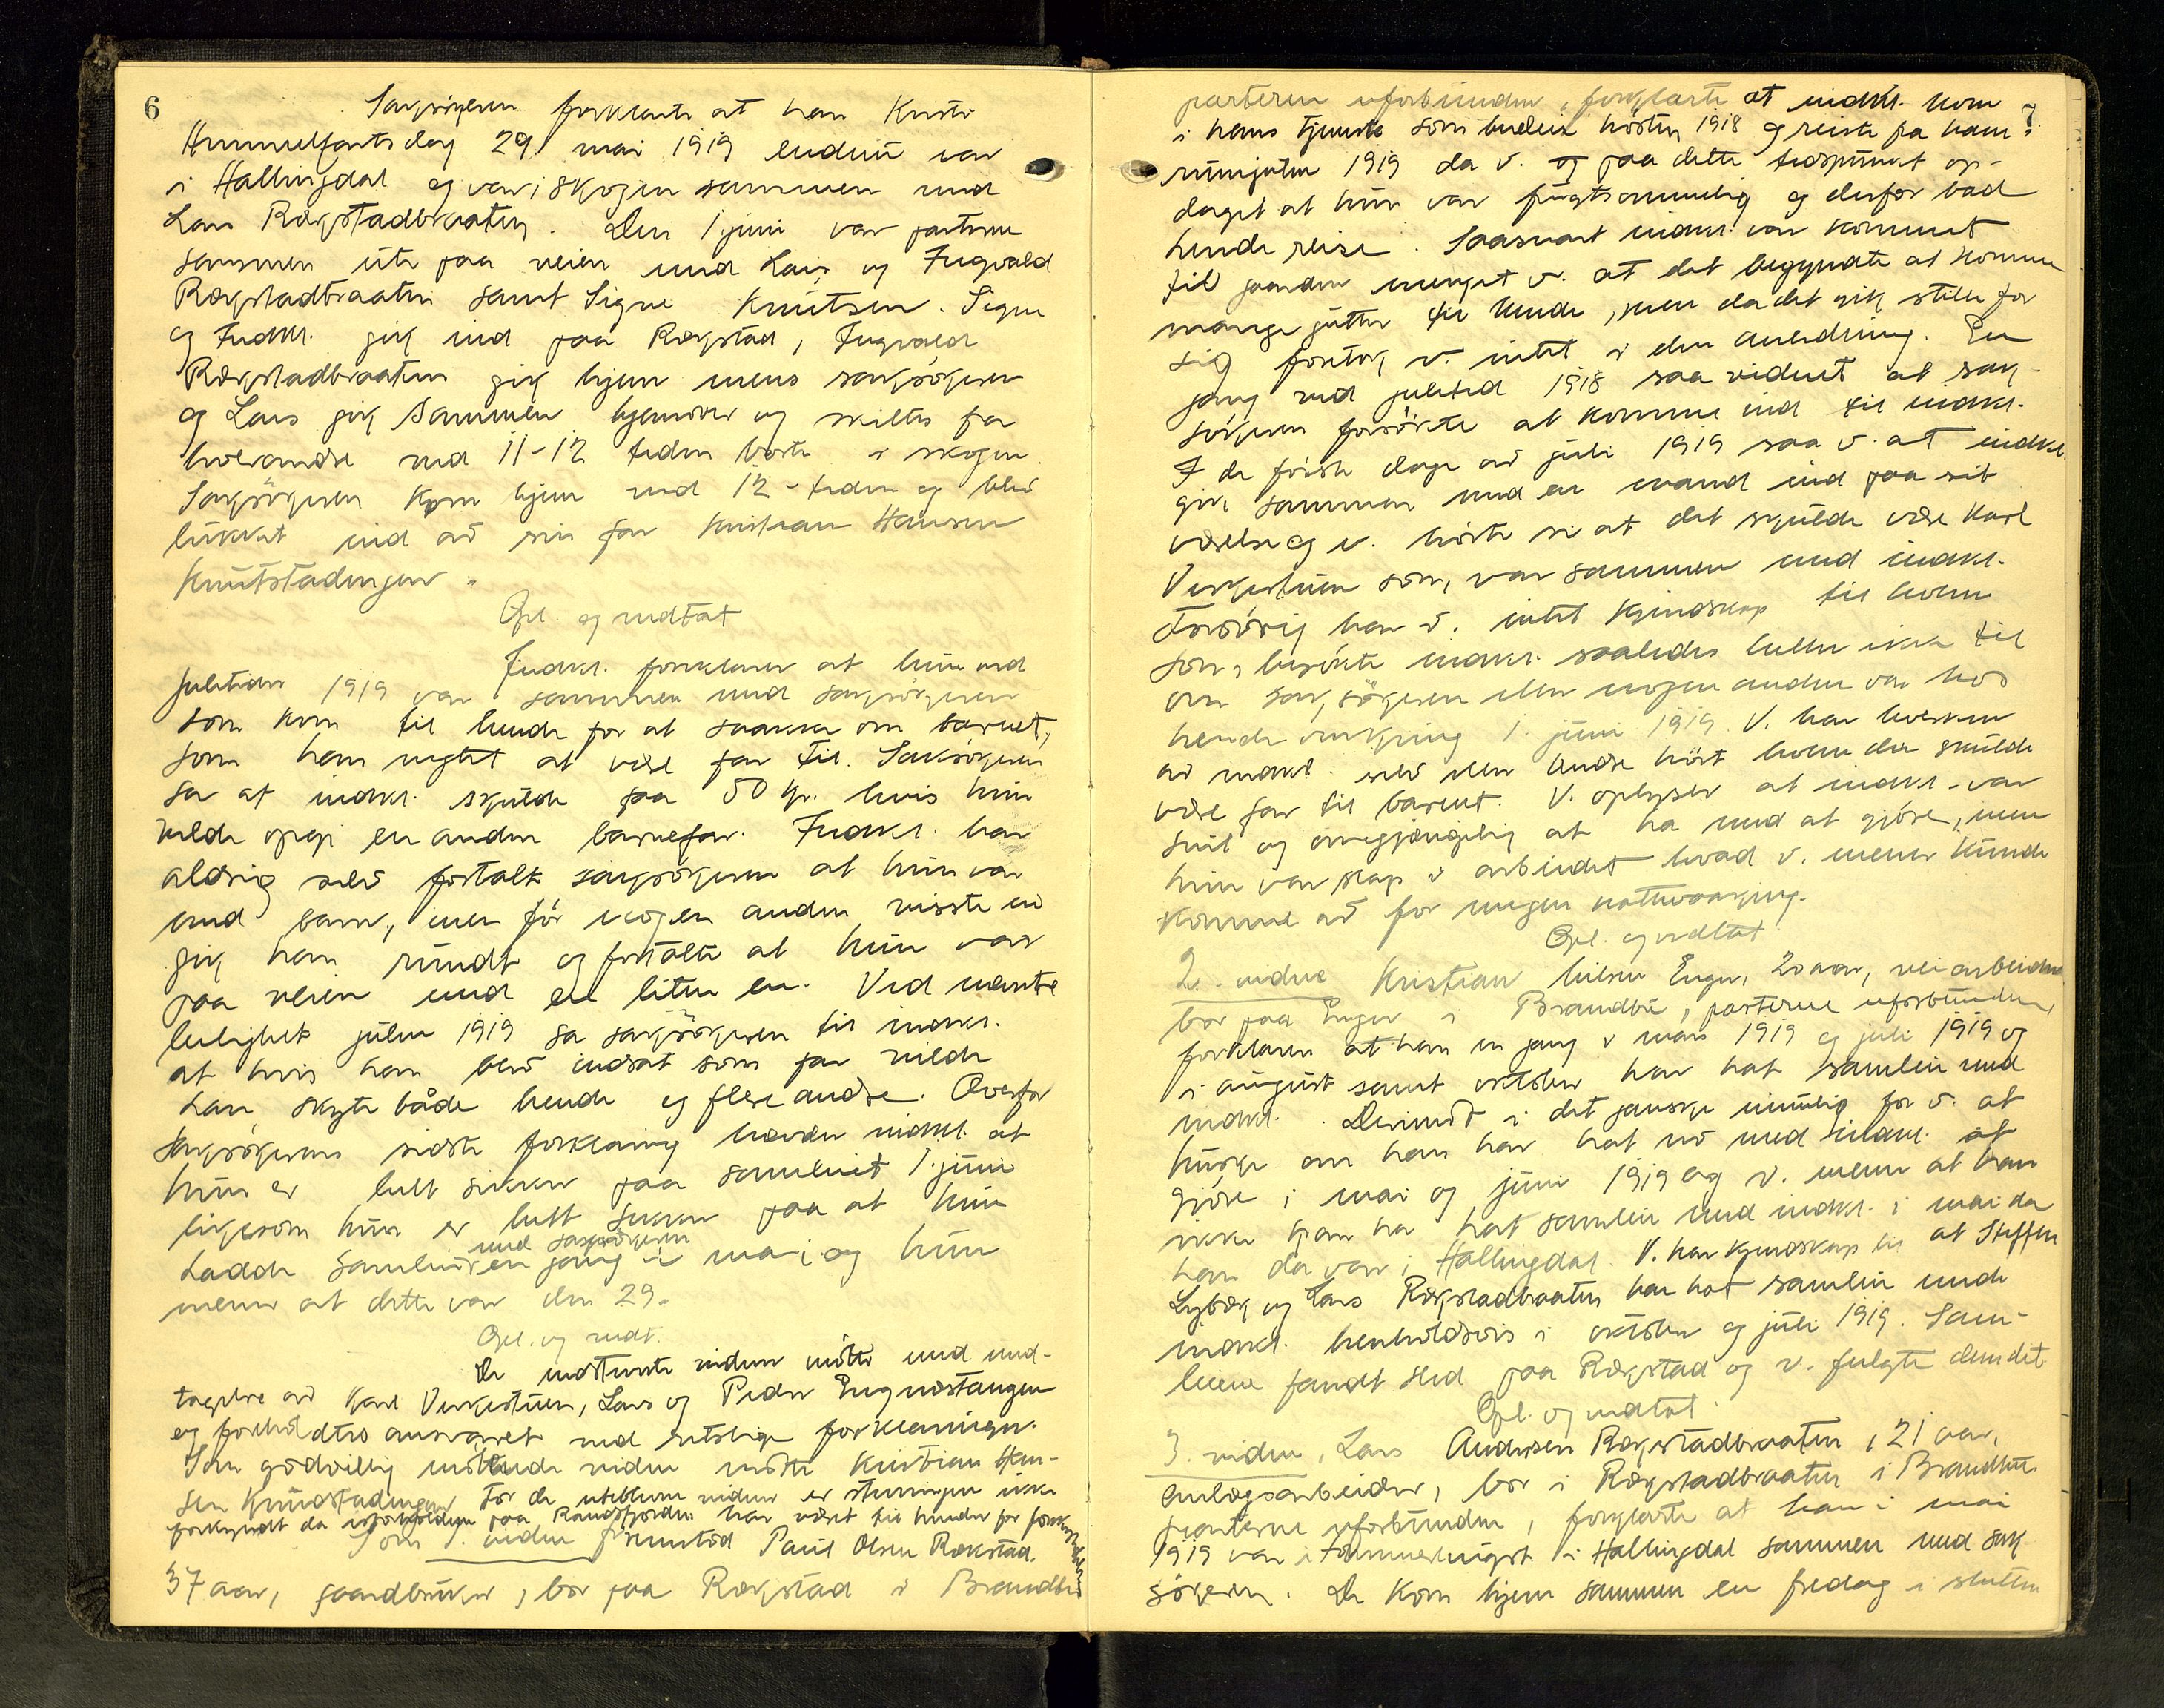 6
Saksøkeren forklarte at han Kristi
Himmelfartsdag 29 mai 1919 endnu var
i Hallingdal og var i skogen sammen med
Lars Rækstadbraaten. Den 1 juni var parterne
sammen ute paa veien med Lars og Ingvald
Rækstadbraaten samt Signe Knutsen. Signe
og Indkl. gik ind paa Rækstad, Ingvald
Rækstadbraaten gik hjem mens saksøkeren
og Lars gik sammen hjemover og skiltes fra
hverandre ved 11-12 tiden borte i skogen.
Saksøkeren kom hjem ved 12-tiden og blev
lukket ind av sin far Kristian Hansen
Knutstadengen.
Opl. og vedtat
Indkl. forklarer at hun ved
juletider 1919 var sammen med saksøkeren
som kom til hende for at snakke om barnet,
som han negtet at være far til. Saksøkeren
sa at indkl. skulde faa 50 kr. hvis hun
vilde opgi en anden barnefar. Indkl. har
aldrig selv fortalt saksøkeren at hun var
med barn, men før nogen anden visste det
gik han rundt og fortalte at hun var
paa veien med en liten en. Ved næste
leilighet julen 1919 sa saksøkeren til indkl.
at hvis han blev indsat som far vilde
han skyte både hende og flere andre. Overfor
saksøkerens sidste forklaring hævder indkl. at
hun er helt sikker paa samleiet 1. juni
likesom hun er helt sikker paa at hun
med saksøkeren
hadde samleie en gang i mai og hun
mener at dette var den 29.
Opl. og vedt.
De indstevnte vidner møtte med und-
tagelse av Karl Verkestuen, Lars og Peder Engnæstangen
og foreholdtes ansvaret ved retslige forklaringer.
Som godvillig møtende vidne møtte Kristian Han-
sen Knudstadengen. For de uteblevne vidner er stevningen ikke
forkyndt da isforholdene paa Randsfjorden har været til hinder for forkyndelsen
Som 1. vidne fremstod Paul Olsen Rækstad,
37 aar, gaardbruker, bor paa Rækstad i Brandbu
7
parterne uforbunden, forklarte at indkl. kom
i hans tjeneste som budeie høsten 1918 og reiste fra ham i
rumjulen 1919 da v. og paa dette tidspunkt op-
daget at hun var frugtsommelig og derfor bad
hende reise. Saasnart indkl. var kommet
til gaarden merket v. at det begyndte at komme
mange gutter til hende, men da det gik stille for
sig foretok v. intet i den anledning. En
gang ved juletid 1918 saa vidnet at sak-
søkeren forsøkte at komme ind til indkl.
I de første dage av juli 1919 saa v. at indkl.
gik sammen med en mand ind paa sit
værelse og v. hørte si at det skulde være Karl
Verkestuen som var sammen med indkl.
Forøvrig har v. intet kjendskap til hvem
som besøkte indkl. saaledes heller ikke til
om saksøkeren eller nogen anden var hos
hende omkring 1. juni 1919. V. har hverken
av indkl. selv eller andre hørt hvem der skulde
være far til barnet. V. oplyser at indkl. var
snil og omgjængelig at ha med at gjøre, men
hun var slap i arbeidet hvad v. mener kunde
komme av for megen nattevaaking.
Opl. og vedtat
2. vidne Kristian Nilsen Enger, 20 aar, veiarbeider
bor paa Enger i Brandbu, parterne uforbunden,
forklarer at han en gang i mars 1919 og juli 1919 og
i august samt oktober har hat samleie med
indkl. Derimot i det ganske umulig for v. at
huske om han har hat no med indkl. at
gjøre i mai og juni 1919 og v. mener at han
ikke kan ha hat samleie med indkl. i mai da
han da var i Hallingdal. V. har kjendskap til at Steffen
Lybæk og Lars Rækstadbraaten har hat samleie med
indkl. henholdsvis i oktober og juli 1919. Sam-
leiene fandt sted paa Rækstad og v. fulgte dem dit
Opl. og vedtat.
3. vidne, Lars Andersen Rækstadbraaten, 21 aar,
anlægsarbeider, bor i Rækstadbraaten i Brandbu
parterne uforbunden, forklarte at han i mai
1919 var i tømmerhugst i Hallingdal sammen med sak
søkeren. De kom hjem sammen en fredag i slutten